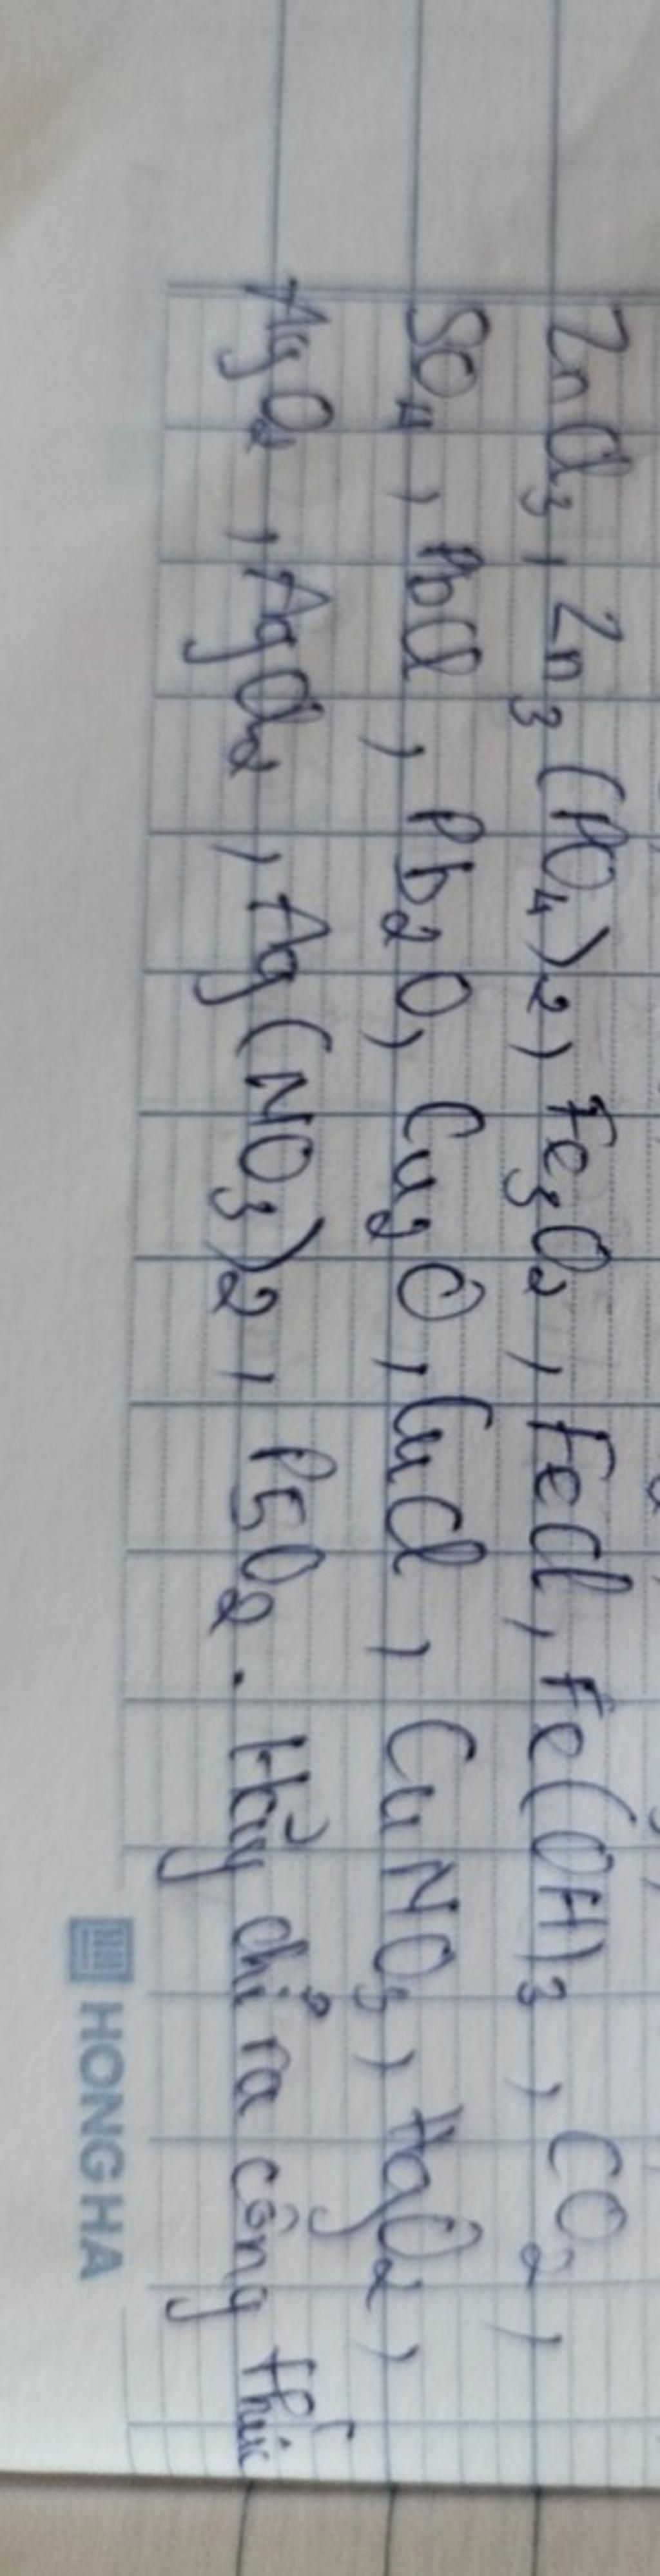 ZnCl₃, Zn₃(PO₄)₂, Fe₃O₂, FeCl, Fe(OH)₃, CO₂,
SO₄, PbCl, Pb₂O, Cu₂O, CuCl, CuNO₃, HgO₂,
AgO₂, AgCl₂, Ag(NO₃)₂, P₅O₂. Hãy chỉ ra công thức
HONG HA